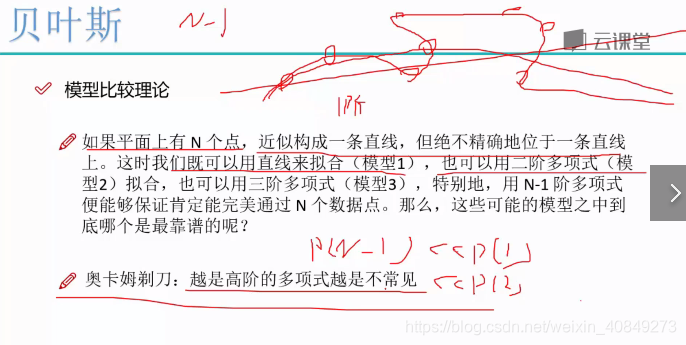 贝叶斯
N-1
云课堂
模型比较理论
1阶
如果平面上有 N 个点，近似构成一条直线，但绝不精确地位于一条直线
上。这时我们既可以用直线来拟合（模型1），也可以用二阶多项式（模
型2）拟合，也可以用三阶多项式（模型3），特别地，用 N-1 阶多项式
便能够保证肯定能完美通过 N 个数据点。那么，这些可能的模型之中到
底哪个是最靠谱的呢？
P(N-1) <<P(1)
奥卡姆剃刀：越是高阶的多项式越是不常见
<<P(2)
https://blog.csdn.net/weixin_40849273